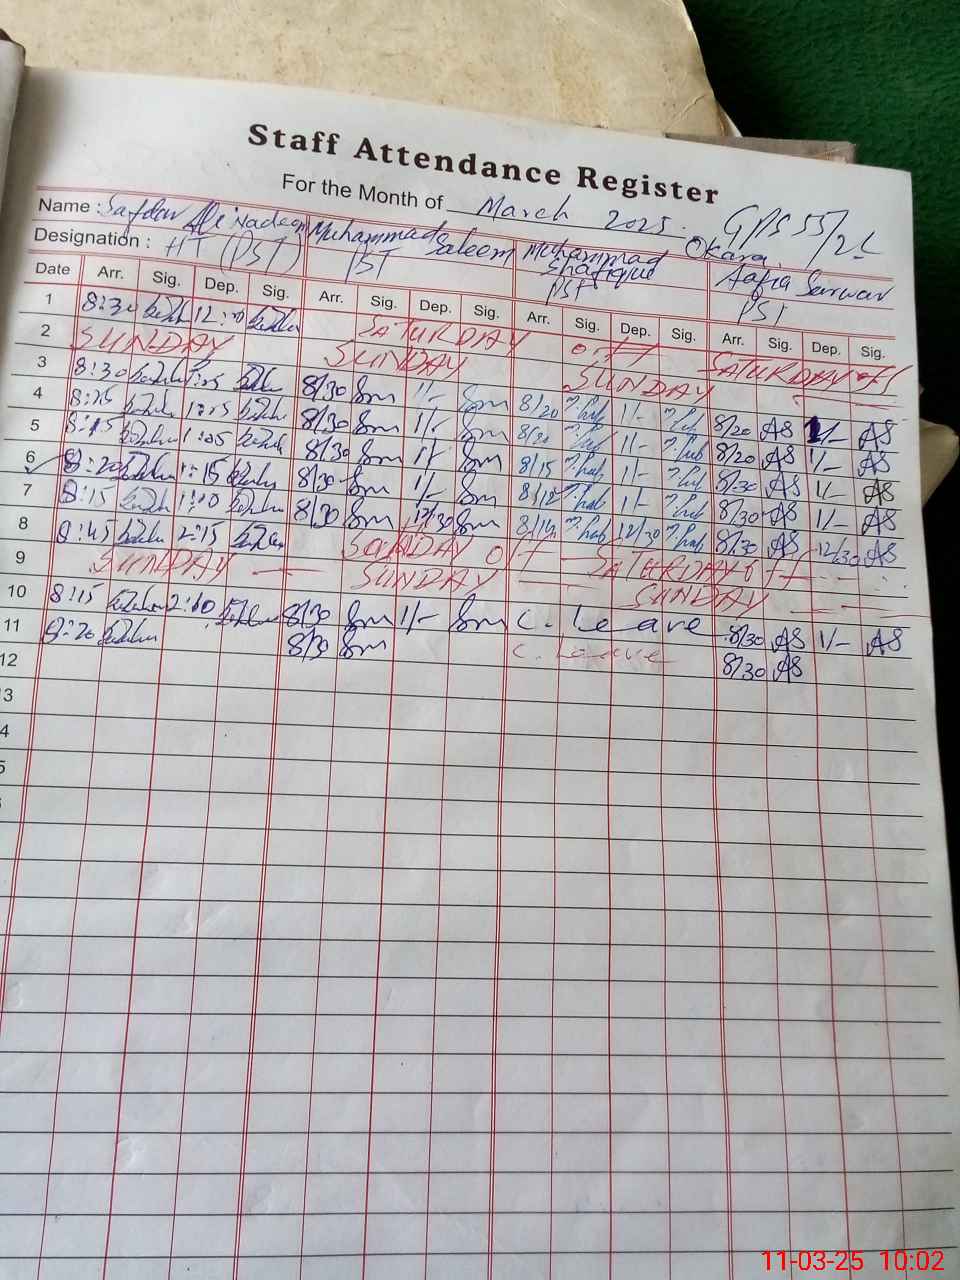 Staff Attendance Register
For the Month of March 2025 GPS 55/2L
Name : Safdar Ali Nadeem Muhammad Saleem Muhammad Shafique Okara Aafia Sarwar
Designation : HT (PST) PST PST PST
Date Arr. Sig. Dep. Sig. Arr. Sig. Dep. Sig. Arr. Sig. Dep. Sig. Arr. Sig. Dep. Sig.
1 8:30 SATURDAY off SATURDAY off
2 SUNDAY SUNDAY SUNDAY
3 8:30 8/30 Sm 1/- Sm 8/20 1/- 8/20 AS 1/- AS
4 8:25 8/30 Sm 1/- Sm 1/- 8/20 AS 1/- AS
5 8:15 1:05 8/30 Sm 1/- Sm 8/15 1/- 8/30 AS 1/- AS
6 8:20 1:15 8/30 Sm 1/- Sm 1/- 8/30 AS 1/- AS
7 8:15 1:10 8/30 Sm 12/30 Sm 12/30 8/30 AS 12/30 AS
8 8:45 2:15 off SATURDAY off
9 SUNDAY SUNDAY SUNDAY
10 8:15 2:10 8/30 Sm 1/- Sm C. Leave 8/30 AS 1/- AS
11 8:20 8/30 Sm C. Leave 8/30 AS
12
3
4
5
11-03-25 10:02